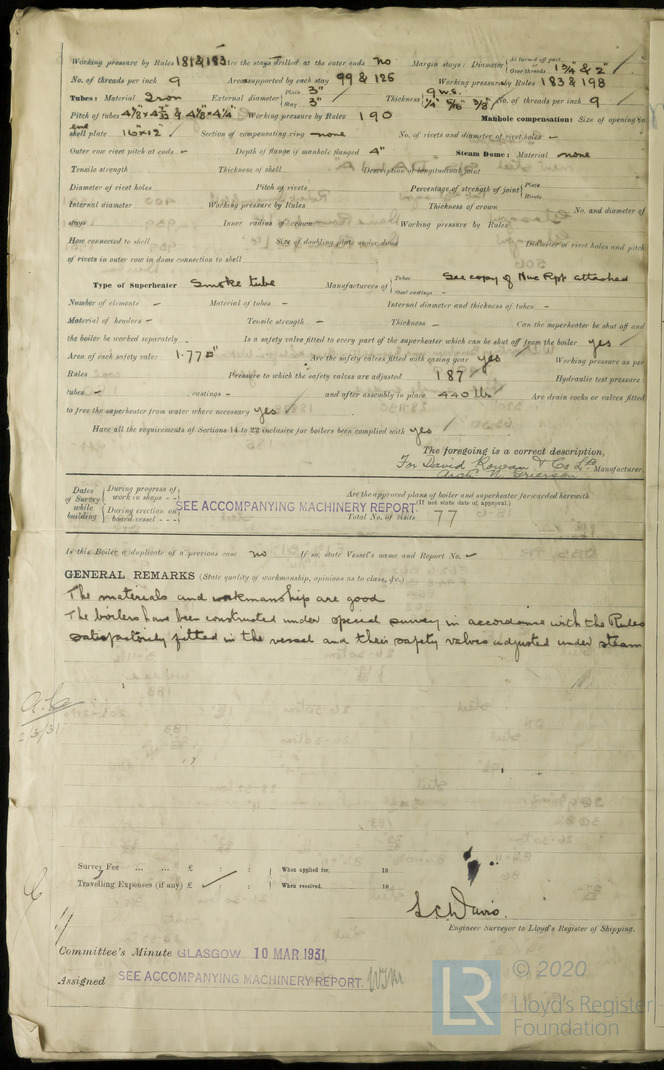 Working pressure by Rules 181 & 183 Are the stays drilled at the outer ends No Margin stays: Diameter { At turned off part, or Over threads 1 3/4" & 2"
No. of threads per inch 9 Area supported by each stay 99 & 125 Working pressure by Rules 183 & 198
Tubes: Material Iron External diameter { Plain 3" Stay 3" Thickness { 9 w.g. 1/4" 5/16" 3/8" No. of threads per inch 9
Pitch of tubes & 4 1/8" x 4 1/4" Working pressure by Rules 190 Manhole compensation: Size of opening in
end shell plate 16" x 12" Section of compensating ring none No. of rivets and diameter of rivet holes -
Outer row rivet pitch at ends - Depth of flange if manhole flanged 4" Steam Dome: Material none
Tensile strength Thickness of shell Description of longitudinal joint
Diameter of rivet holes Pitch of rivets Percentage of strength of joint { Plate Rivets
Internal diameter Working pressure by Rules Thickness of crown No. and diameter of
stays Inner radius of crown Working pressure by Rules
How connected to shell Size of doubling plate under dome Diameter of rivet holes and pitch
of rivets in outer row in dome connection to shell
Type of Superheater Smoke tube Manufacturers of { Tubes Steel castings See copy of Nwc Rpt attached
Number of elements - Material of tubes - Internal diameter and thickness of tubes -
Material of headers - Tensile strength - Thickness - Can the superheater be shut off and
the boiler be worked separately - Is a safety valve fitted to every part of the superheater which can be shut off from the boiler yes
Area of each safety valve 1.77 □" Are the safety valves fitted with easing gear yes Working pressure as per
Rules Pressure to which the safety valves are adjusted 187 Hydraulic test pressure:
tubes - castings - and after assembly in place 440 lbs Are drain cocks or valves fitted
to free the superheater from water where necessary yes
Have all the requirements of Sections 14 to 22 inclusive for boilers been complied with yes
The foregoing is a correct description,
For David Rowan & Co Ltd. Manufacturer.
Arch. W. Grierson
Dates of Survey while building { During progress of work in shops - - During erection on board vessel - - - SEE ACCOMPANYING MACHINERY REPORT. Are the approved plans of boiler and superheater forwarded herewith (If not state date of approval.)
Total No. of visits 77
Is this Boiler a duplicate of a previous case no If so, state Vessel's name and Report No. -
GENERAL REMARKS (State quality of workmanship, opinions as to class, &c.)
The materials and workmanship are good
The boilers have been constructed under special survey in accordance with the Rules
satisfactorily fitted in the vessel and their safety valves adjusted under steam
2/3/31
Survey Fee ... ... £ : : When applied for, 19
Travelling Expenses (if any) £ : : When received, 19
L C Davis.
Engineer Surveyor to Lloyd's Register of Shipping.
Committee's Minute GLASGOW 10 MAR 1931
Assigned SEE ACCOMPANYING MACHINERY REPORT.
LR © 2020
Lloyd's Register
Foundation